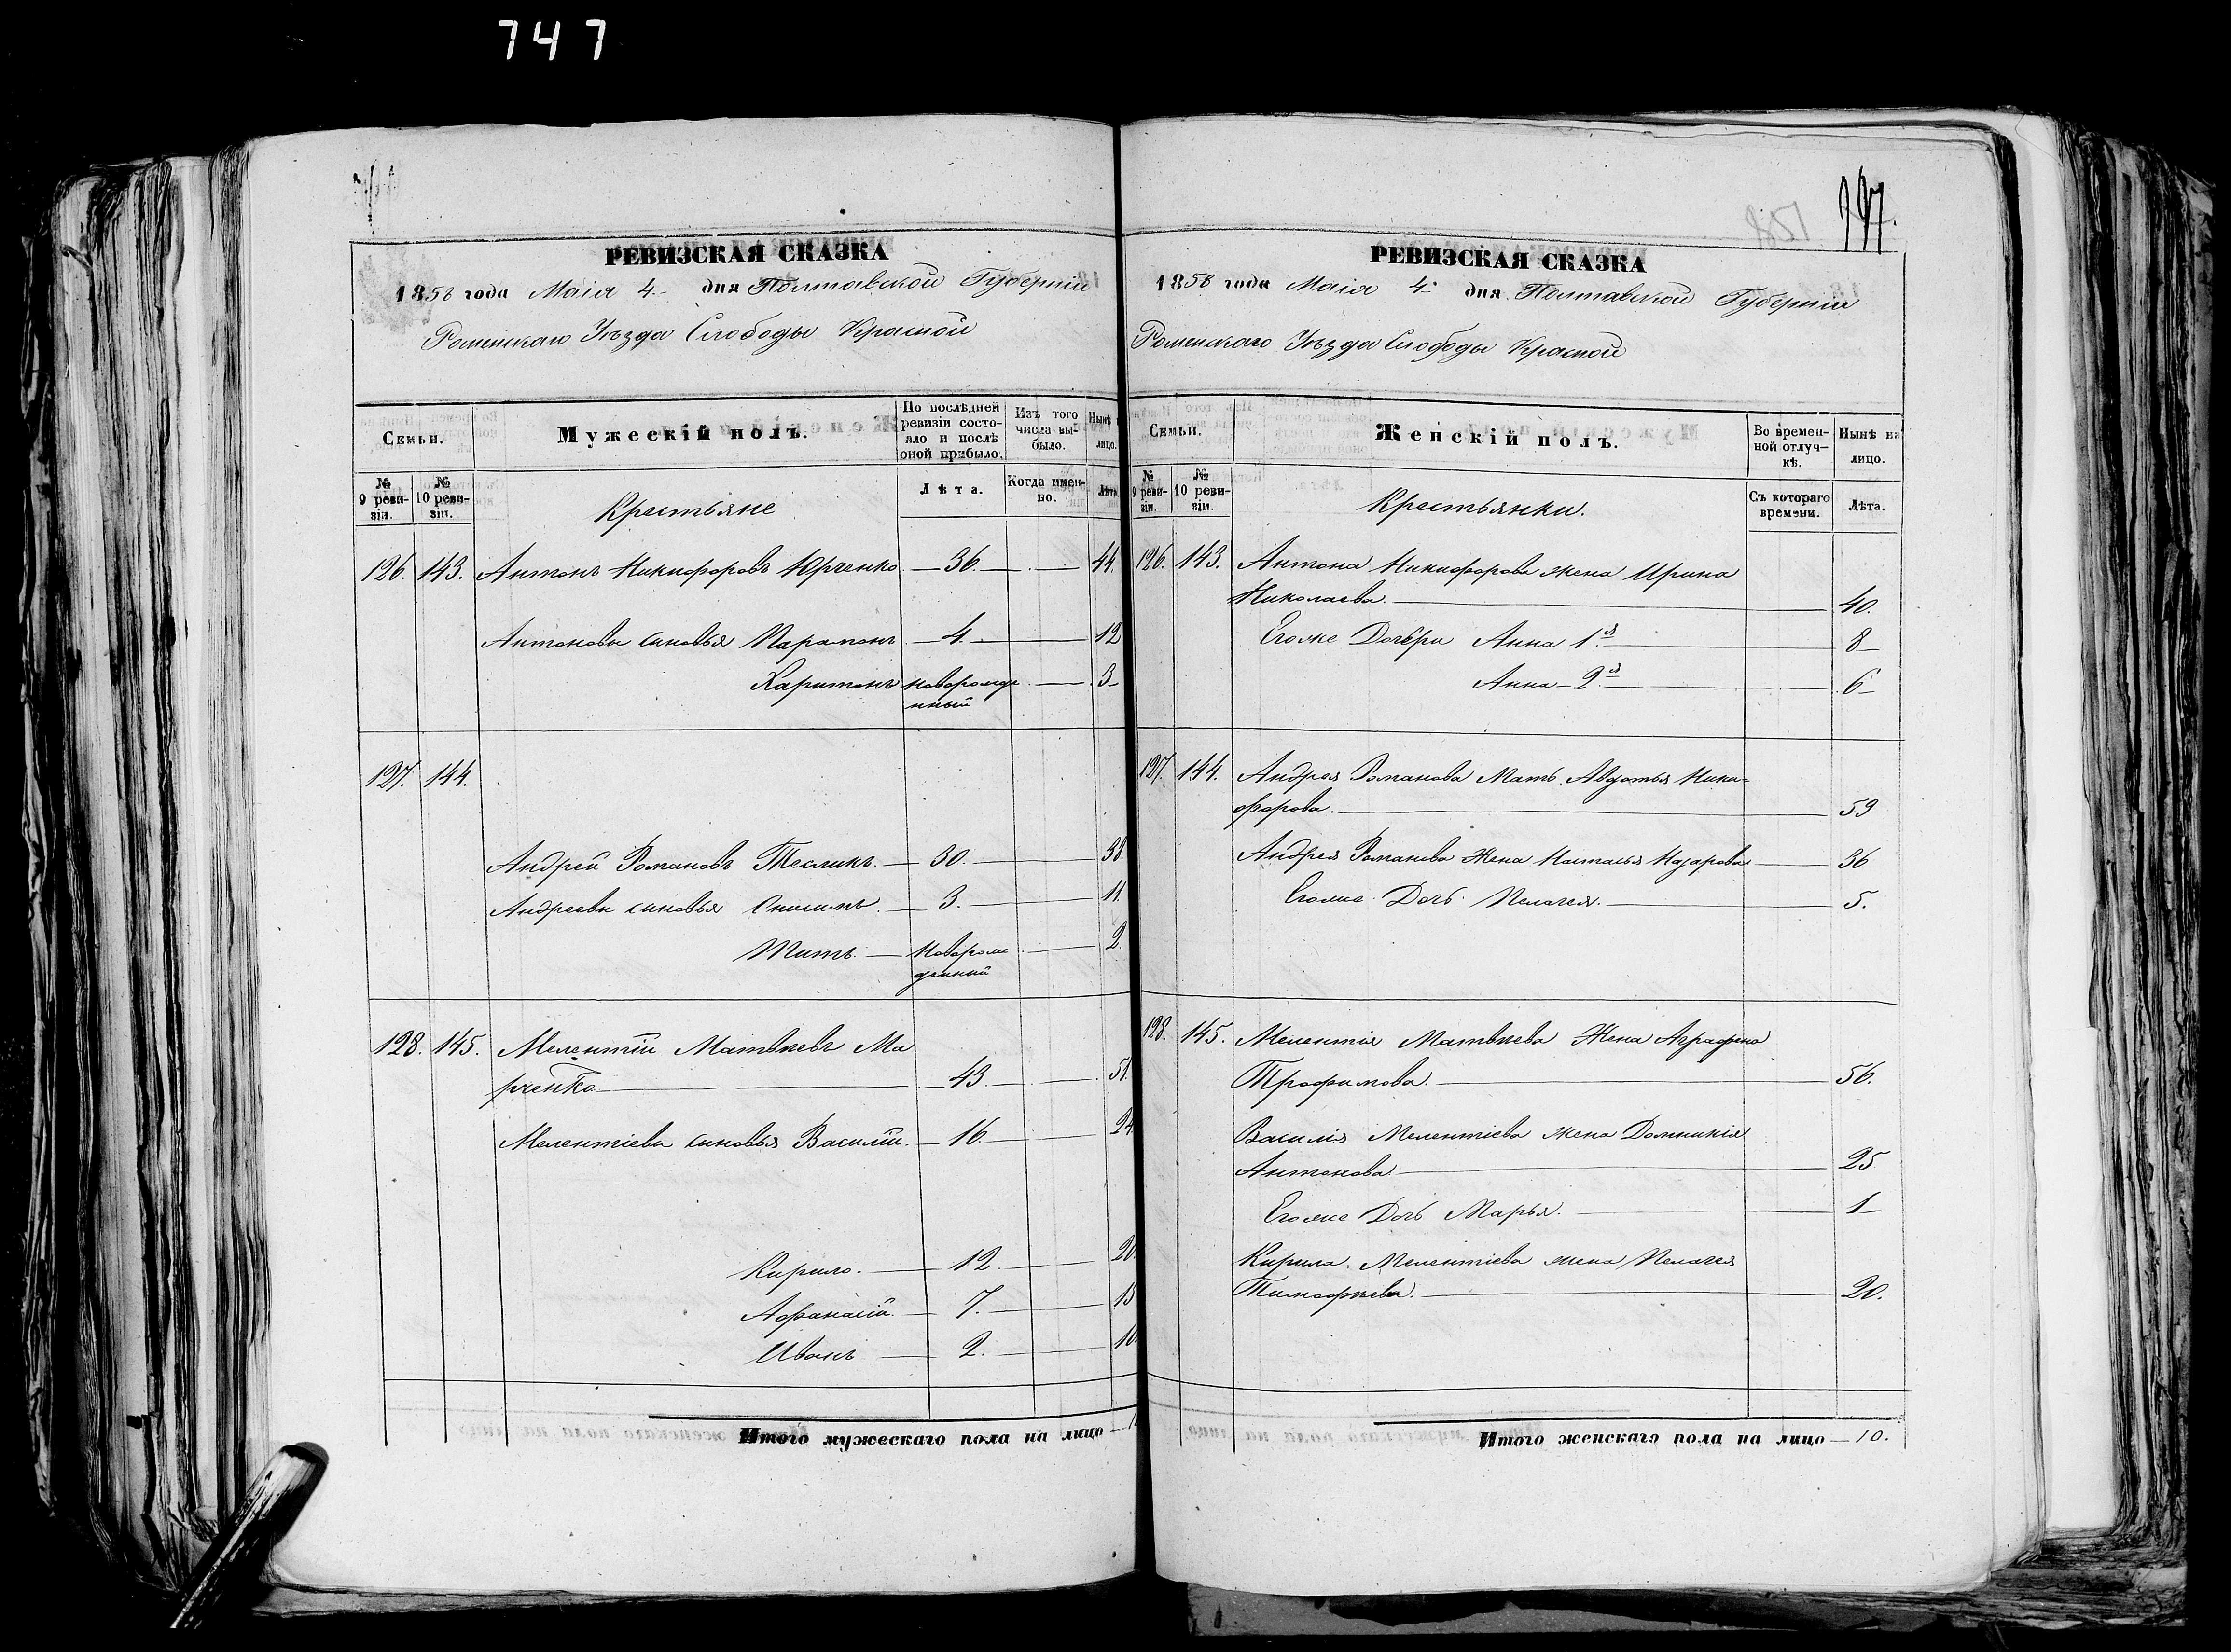 747
РЕВИЗСКАЯ СКАЗКА
1858 года Маія 4 дня Полтавской Губерніи
Роменскаго Уѣзда Слободы Красной
Семьи.
Мужескій полъ.
По послѣдней ревизіи состояло и послѣ оной прибыло.
Изъ того числа выбыло.
Нынѣ
лицо.
№ 9 ревизіи.
№ 10 ревизіи.
Крестьяне
Лѣта.
Когда именно.
Лѣта
126. 143. Антонъ Никифоровъ Юрченко — 36. — 44.
Антоновы сыновья Парамонъ — 4. — 12
Харитонъ новорожде — 3
нный
127. 144.
Андрей Романовъ Тесликъ. — 30. — 38.
Андреевы сыновья Онисимъ — 3. — 11.
Титъ. — Новорож — 2.
денный
128. 145. Мелентій Матвѣевъ Ма
рченко — 43. — 51.
Мелентіевы сыновья Василій. — 16. — 24
Кирило. — 12. — 20
Афанасій. — 7. — 15
Иванъ — 2. — 10.
Итого мужескаго пола на лицо — 1
747.
РЕВИЗСКАЯ СКАЗКА
1858 года Маія 4 дня Полтавской Губерніи
Роменскаго Уѣзда Слободы Красной
Семьи.
Женскій полъ.
Во временной отлучкѣ.
Нынѣ на лицо.
№ 9 ревизіи.
№ 10 ревизіи.
Крестьянки.
Съ котораго времени.
Лѣта.
126. 143. Антона Никифорова жена Ирина
Николаева. — 40.
Егоже Дочери Анна 1я — 8
Анна 2я — 6
127. 144. Андрея Романова Мать Авдотья Ники=
форова. — 59
Андрея Романова Жена Настасья Назарова — 36
Егоже Дочь Пелагея. — 5.
128. 145. Мелентія Матвѣева Жена Аграфена
Трофимова. — 56.
Василія Мелентіева жена Домникія
Антонова — 25
Егоже Дочь Марья. — 1
Кирила Мелентіева жена Пелагея
Тимофѣева. — 20.
Итого женскаго пола на лицо — 10.